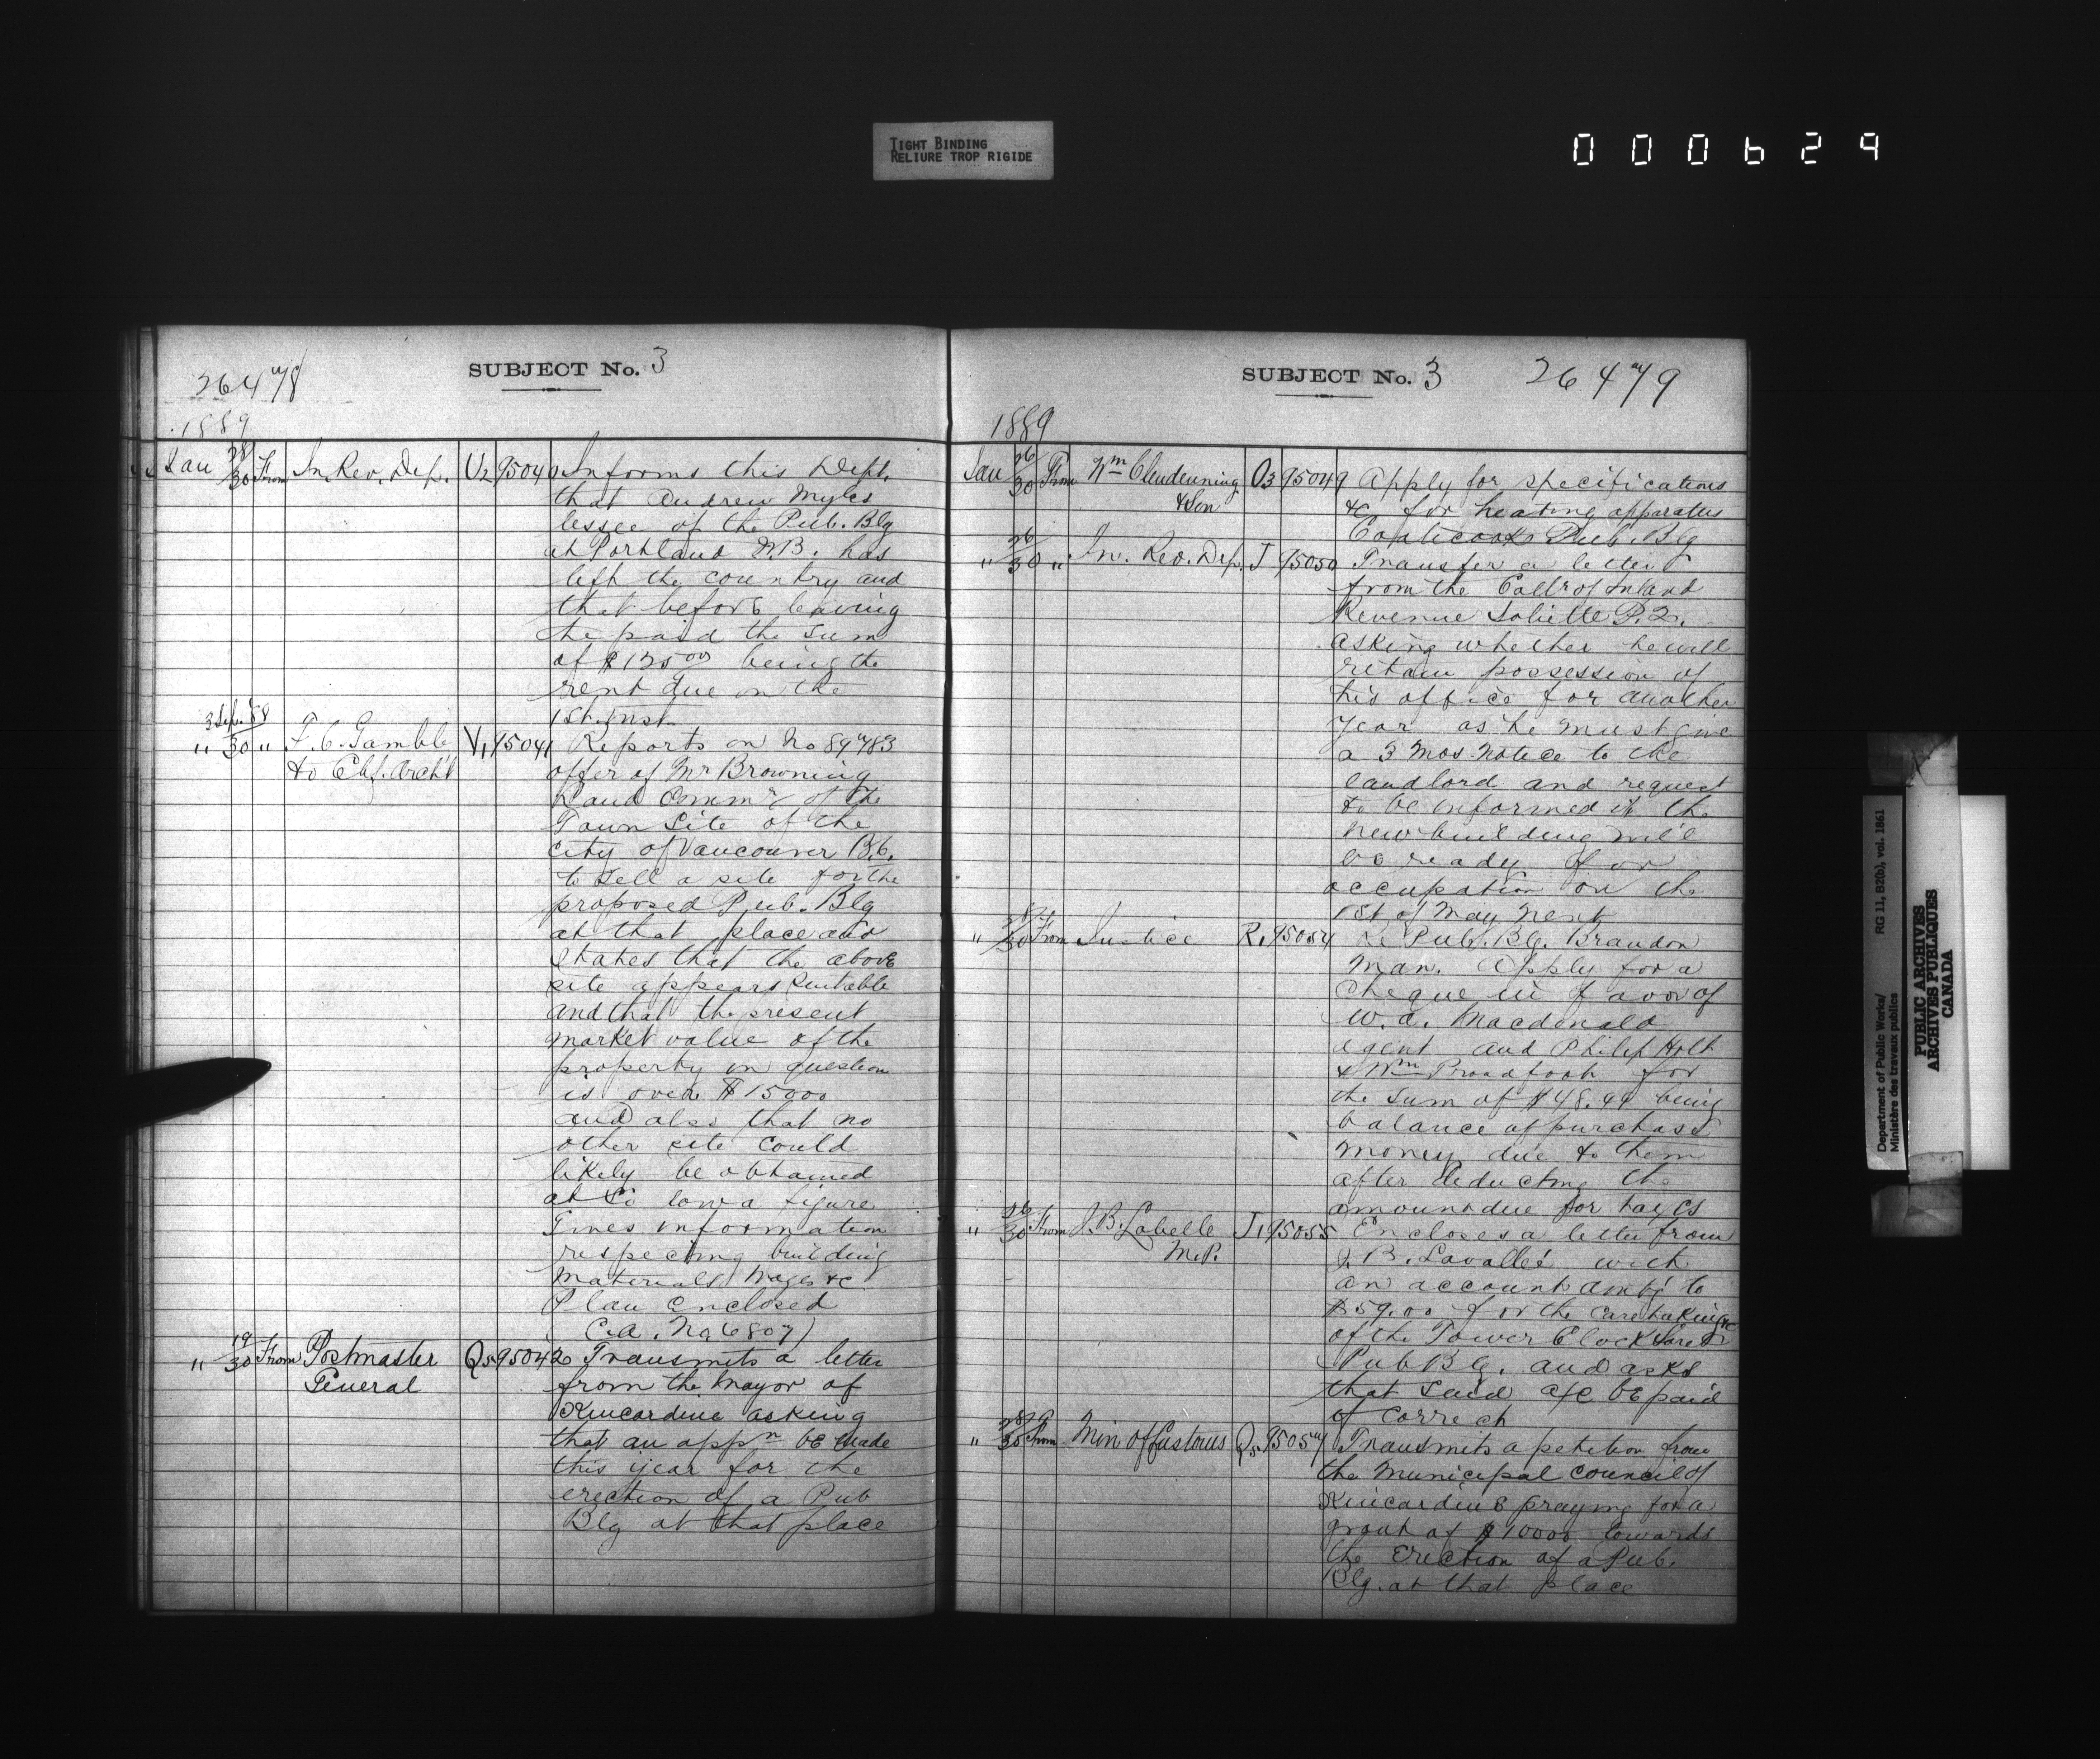 TIGHT BINDING
RELIURE TROP RIGIDE
000629
26478
SUBJECT No. 3
1889
Jan 28/30 From In. Rev. Dep. U2 95040 Informs this Dept.
that Andrew Myles
lessee of the Pub. Blg
at Portland N.B. has
left the country and
that before leaving
he paid the sum
of $125.00 being the
rent due on the
1st. inst.
3 Sep. 88
" 30 " F. C. Gamble V1 95041 Reports on No 89783
to Chf. Archt offer of Mr Browning
Land Commr of the
Town Site of the
City of Vancouver B.C.
to sell a site for the
proposed Pub. Blg
at that place and
states that the above
site appears suitable
and that the present
market value of the
property in question
is over $15000
and also that no
other site could
likely be obtained
at so low a figure
Gives information
respecting building
materials wages &c
Plan enclosed
C.A. No 6807)
" 19/30 From Postmaster Q5 95042 Transmits a letter
General from the Mayor of
Kincardine asking
that an appn be made
this year for the
erection of a Pub
Blg at that place
SUBJECT No. 3 26479
1889
Jan 26/30 From Wm Clendenning O3 95049 Apply for specifications
& Son &c for heating apparatus
Coaticook Pub. Blg
" 26/30 " In. Rev. Dep. J 95050 Transfer a letter
from the Collr of Inland
Revenue Joliette P.Q.
asking whether he will
retain possession of
his office for another
year as he must give
a 3 mos. notice to the
landlord and request
to be informed if the
new building will
be ready for
occupation on the
1st of May next
" 30 From Justice R1 95054 Re Pub. Blg. Brandon
Man. Apply for a
cheque in favor of
W. A. Macdonald
agent and Philip Holt
& Wm Proudfoot for
the sum of $48.49 being
balance of purchase
money due to them
after deducting the
amount due for taxes
" 26/30 From J. B. Labelle J1 95055 Encloses a letter from
M.P. J. B. Lavallée with
an account amtg to
$59.00 for the caretaking &c
of the Tower Clock Sorel
Pub Blg. and asks
that said a/c be paid
if correct
" 28/30 From Min of Customs Q5 95057 Transmits a petition from
the Municipal Council of
Kincardine praying for a
grant of $10000 towards
the erection of a Pub.
Blg. at that place
Department of Public Works/ RG 11, B2(b), vol. 1861
Ministère des travaux publics
PUBLIC ARCHIVES
ARCHIVES PUBLIQUES
CANADA